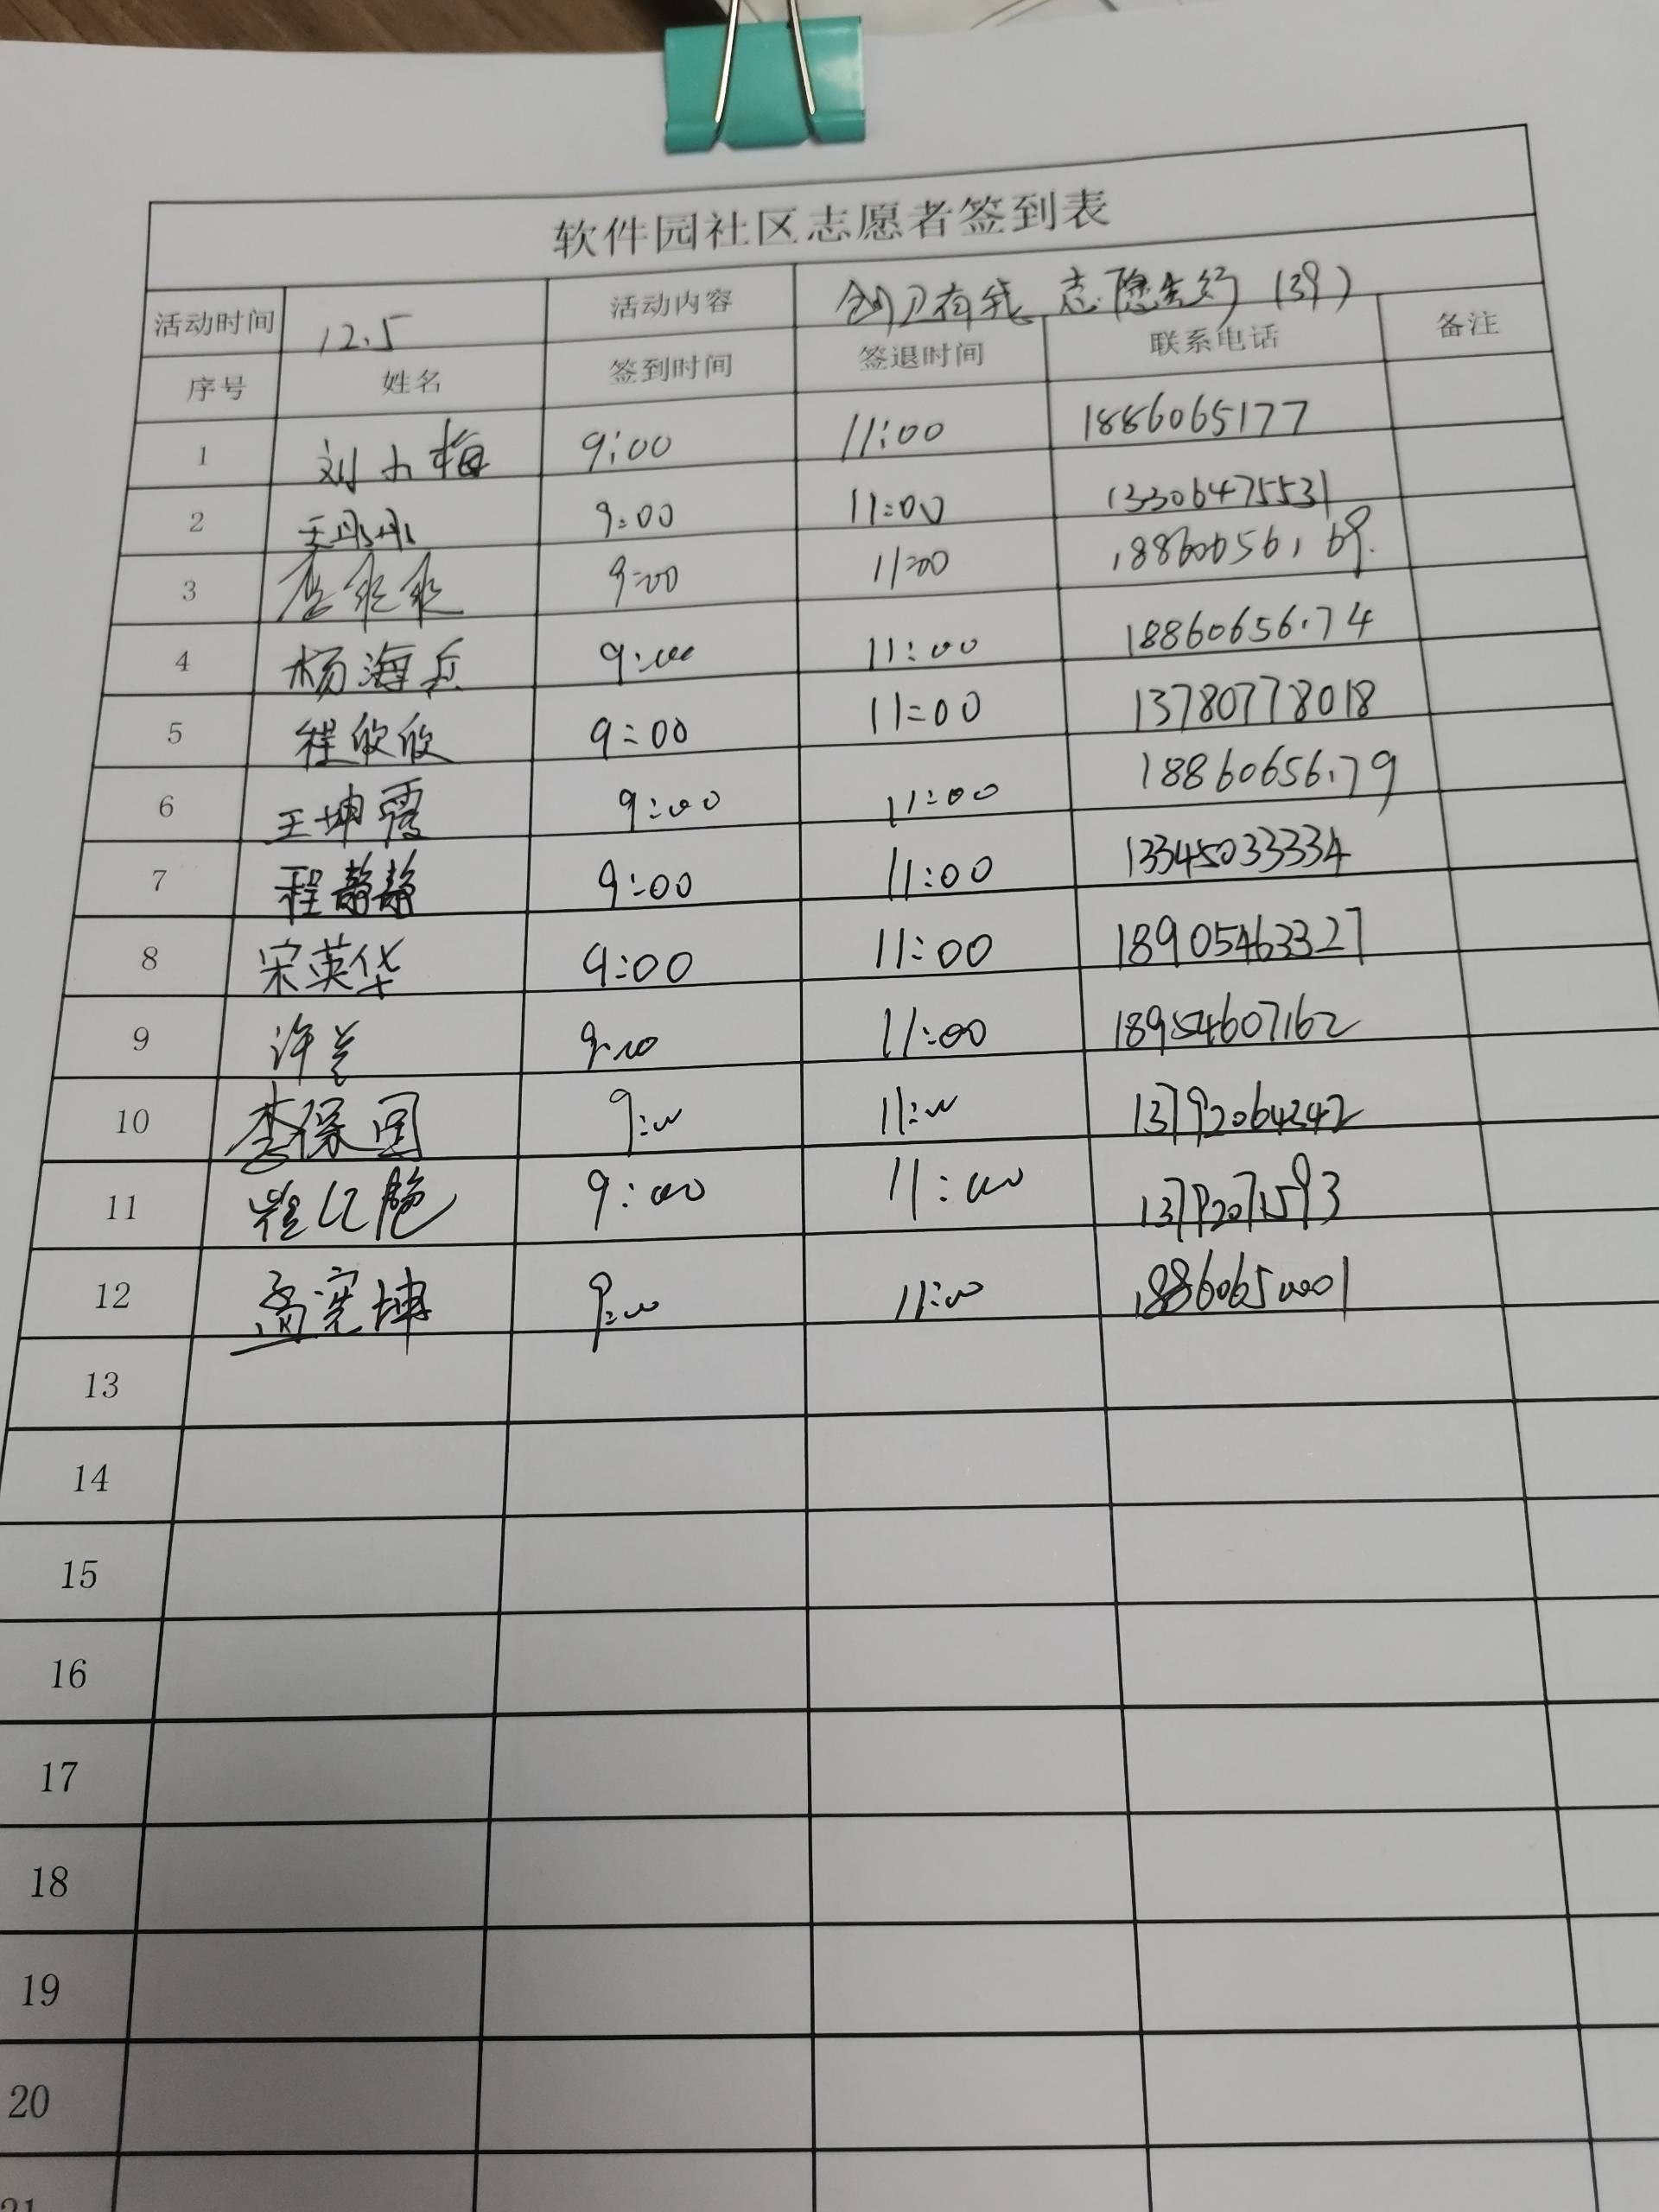 软件园社区志愿者签到表
活动时间 12.5 活动内容 创卫有我 志愿先行 (39)
序号 姓名 签到时间 签退时间 联系电话 备注
1 刘小梅 9:00 11:00 1886065177
2 王彤彤 9:00 11:00 13306475531
3 9:00 11:00 18860656169
4 杨海兵 9:00 11:00 18860656174
5 程欣欣 9:00 11:00 13780778018
6 王坤霞 9:00 11:00 18860656179
7 程静静 9:00 11:00 13345033334
8 宋英华 9:00 11:00 18905463327
9 许兰 9:00 11:00 18954607162
10 李保国 9:00 11:00 13792064242
11 崔红艳 9:00 11:00 13792071593
12 孟宪坤 9:00 11:00 18860650001
13
14
15
16
17
18
19
20
21